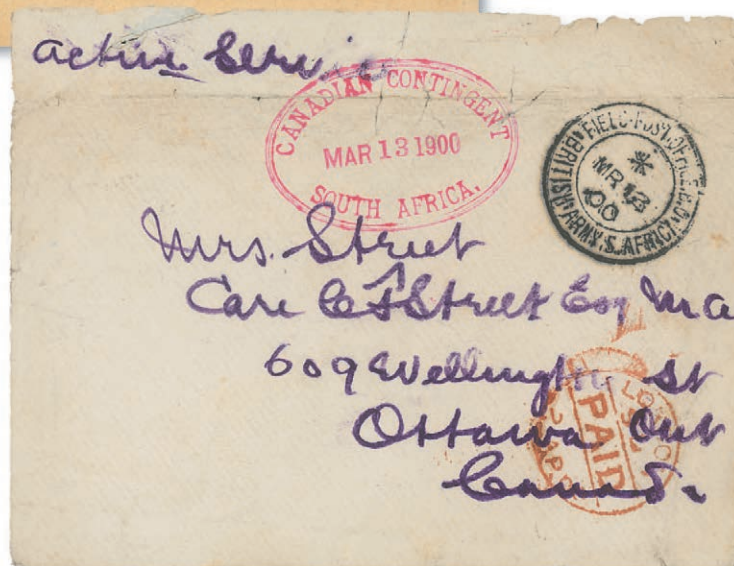 Active Service
CANADIAN CONTINGENT
MAR 13 1900
SOUTH AFRICA.
FIELD POST OFFICE
MR 13
00
BRITISH ARMY S. AFRICA
Mrs. Street
Care Street Esq M A
609 Wellington St
Ottawa Ont
Canada
PAID